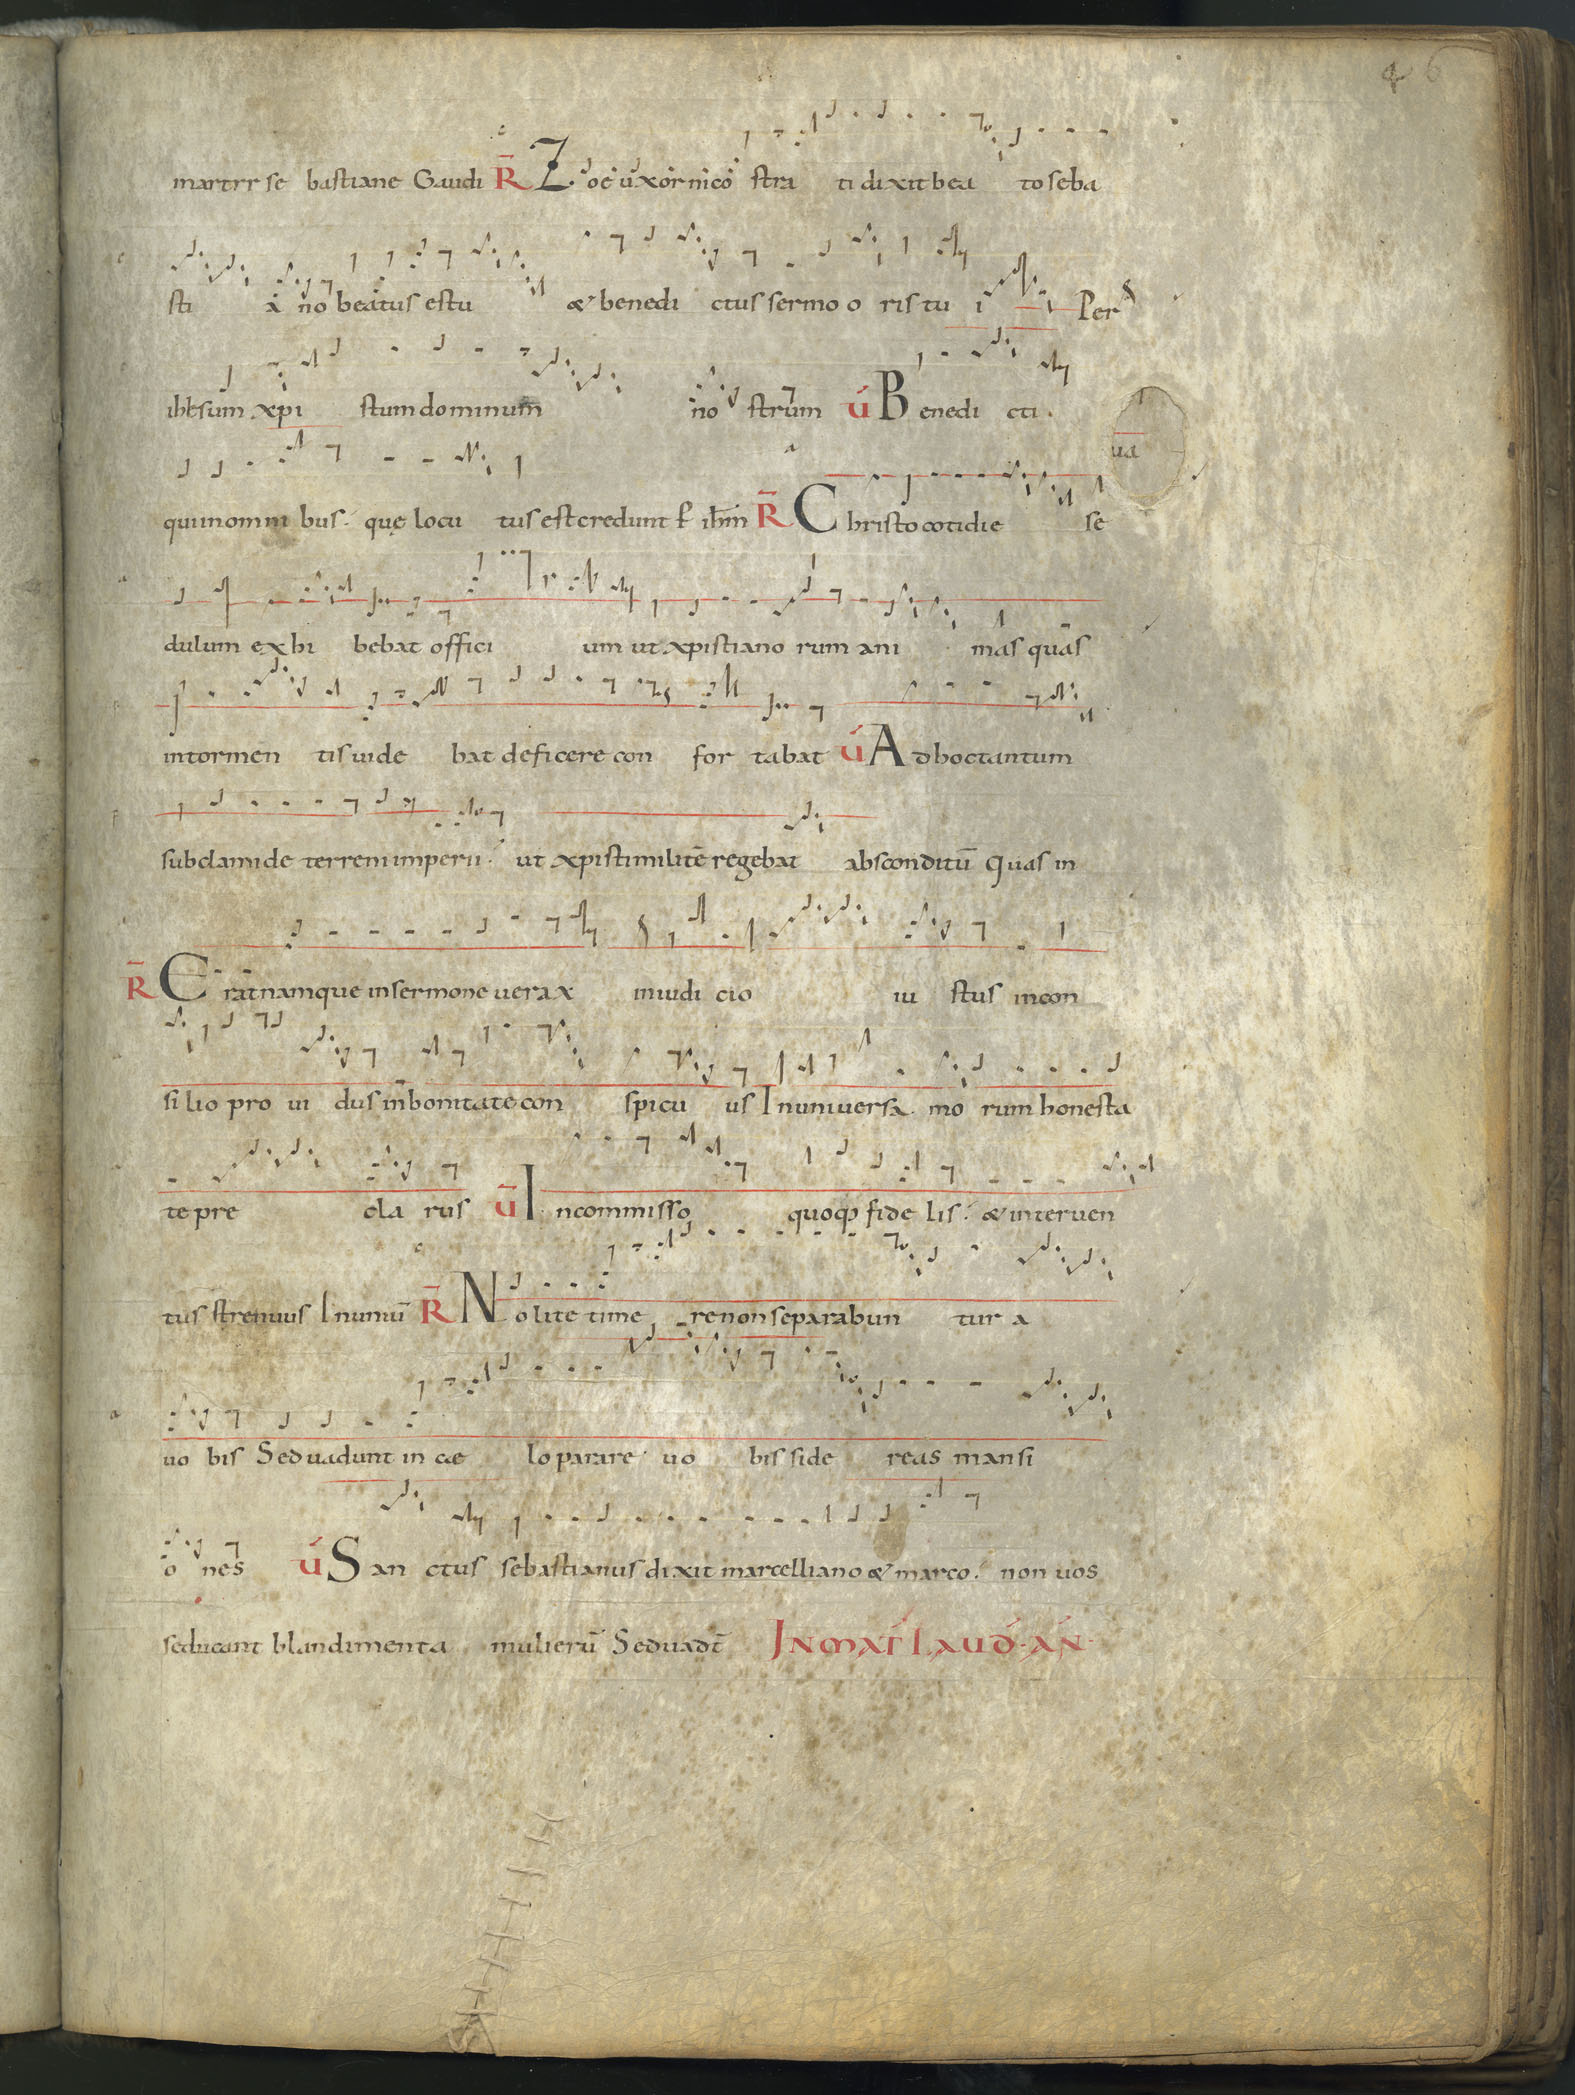 46
martyr se bastiane Gaudi R̄ Zoe uxor nico stra ti dixit bea to seba
sti a no beatus es tu & benedi ctus sermo o ris tu i Per
ihesum xpi stum dominum no strum V́ Benedi cti
ua
qui in omni bus. quę locu tus est credunt P̄ ihm̄ R̄ Christo cotidie se
dulum exhi bebat offici um ut xpistiano rum ani mas quas
in tormen tis uide bat deficere con for tabat V́ Ad hoc tantum
sub clamide terreni imperii. ut xpisti militē regebat absconditū Quas in
R̄ Erat namque in sermone uerax in iudi cio iu stus in con
si lio pro ui dus in bonitate con spicu us In uniuersa mo rum honesta
te pre cla rus V̄ In commisso quoq; fide lis. & interuen
tus strenuus In uniū R̄ Nolite time re non separabun tur a
uo bis Sed uadunt in cæ lo parare uo bis side reas mansi
o nes V́ San ctus sebastianus dixit marcelliano & marco. non uos
seducant blandimenta mulierū Sed uadt̄ IN MAT̄ LAUD·AN·